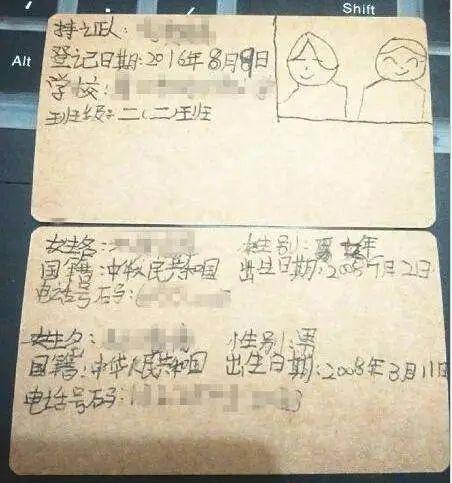 Alt
Shift
持证人:
登记日期:2016年8月9日
学校:
班级:二(二)班
姓名: 性别: 女
国籍:中华人民共和国 出生日期:2008年 月2日
电话号码:
姓名: 性别:男
国籍:中华人民共和国 出生日期:2008年3月11日
电话号码:1 3